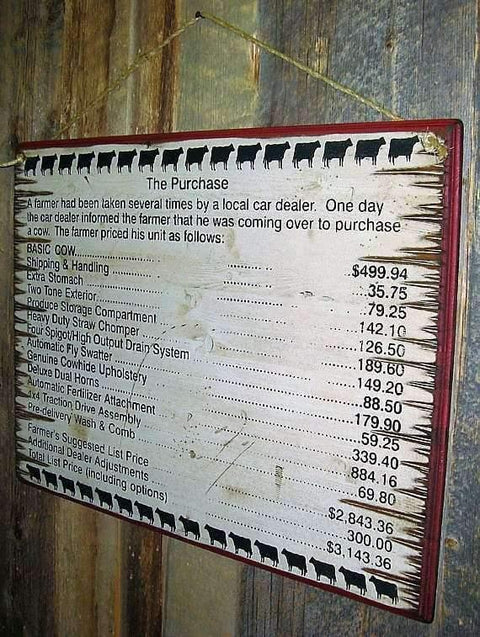 The Purchase
A farmer had been taken several times by a local car dealer. One day
the car dealer informed the farmer that he was coming over to purchase
a cow. The farmer priced his unit as follows:
BASIC COW.......................... $499.94
Shipping & Handling .......................... 35.75
Extra Stomach .......................... 79.25
Two Tone Exterior.......................... 142.10
Produce Storage Compartment .......................... 126.50
Heavy Duty Straw Chomper .......................... 189.60
Four Spigot/High Output Drain System .......................... 149.20
Automatic Fly Swatter .......................... 88.50
Genuine Cowhide Upholstery .......................... 179.90
Deluxe Dual Horns .......................... 59.25
Automatic Fertilizer Attachment .......................... 339.40
4x4 Traction Drive Assembly .......................... 884.16
Pre-delivery Wash & Comb .......................... 69.80
Farmer's Suggested List Price .......................... $2,843.36
Additional Dealer Adjustments .......................... 300.00
Total List Price (including options) .......................... $3,143.36